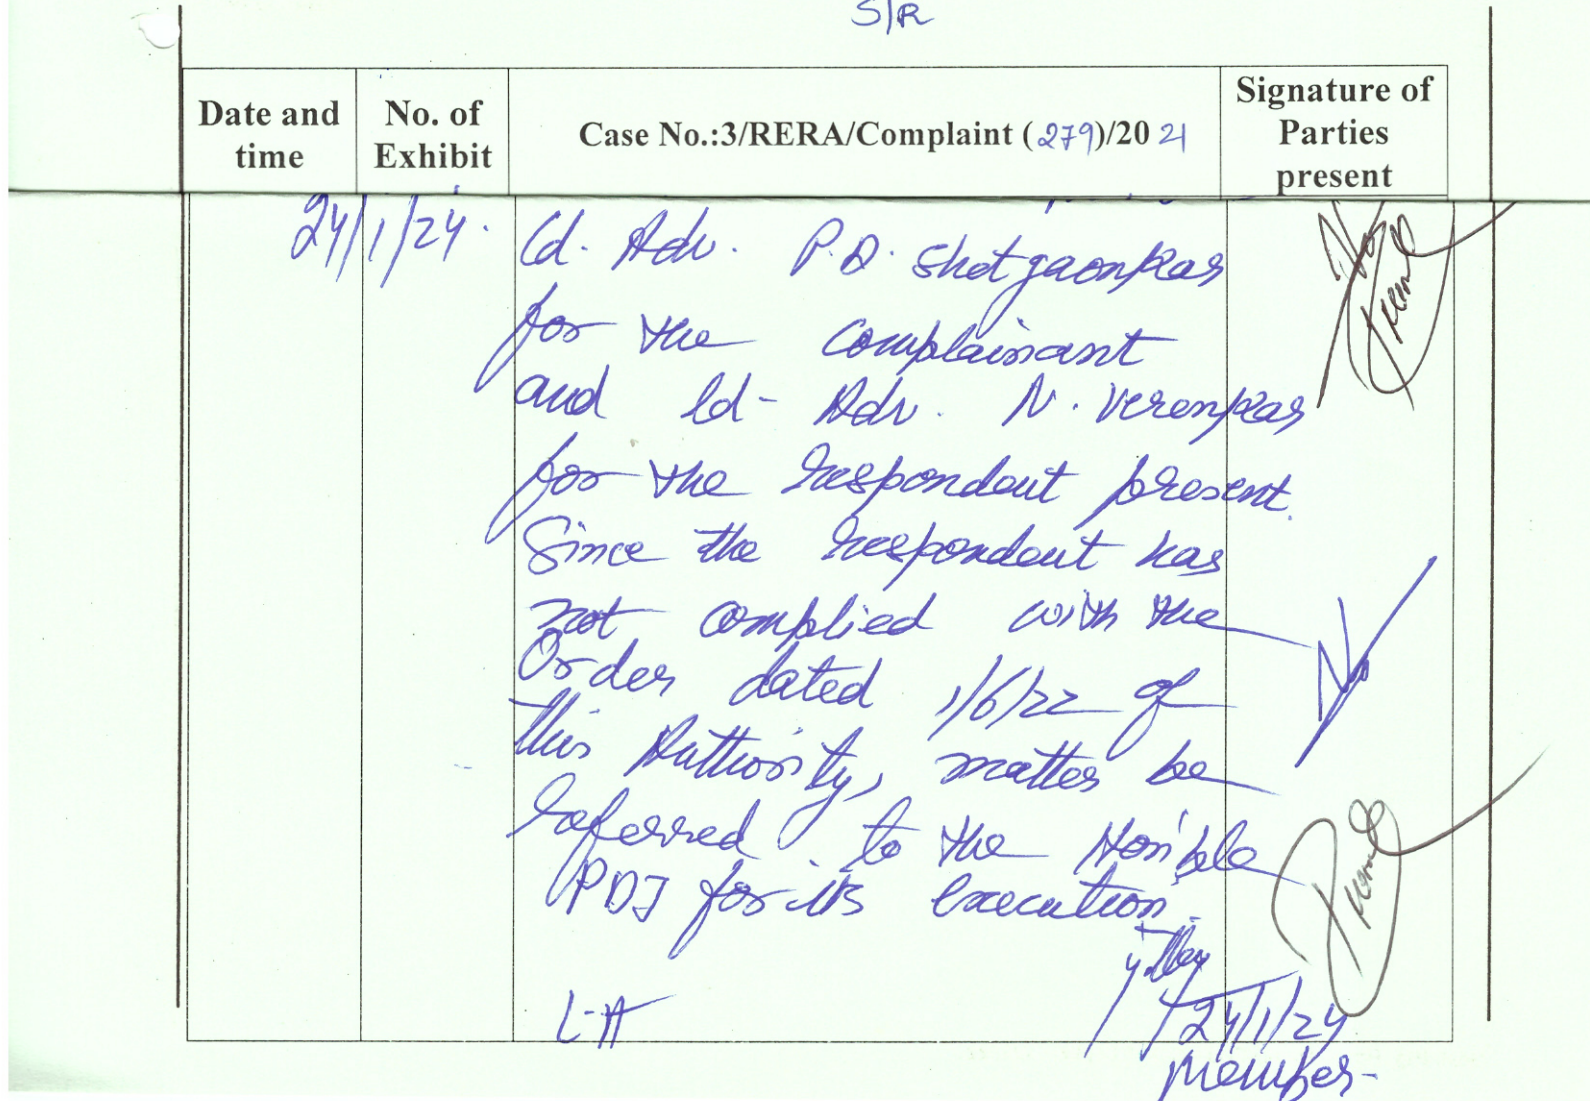 S/R
Date and time
No. of Exhibit
Case No.:3/RERA/Complaint (279)/2021
Signature of Parties present
24/1/24.
Ld. Adv. P.D. Shetgaonkar
for the Complainant
and Ld- Adv. N. Verenkar
for the respondent present.
Since the respondent has
not complied with the
Order dated 1/6/22 of
this Authority, matter be
referred to the Hon'ble
PDJ for its execution.
24/1/24
L-A
Member-